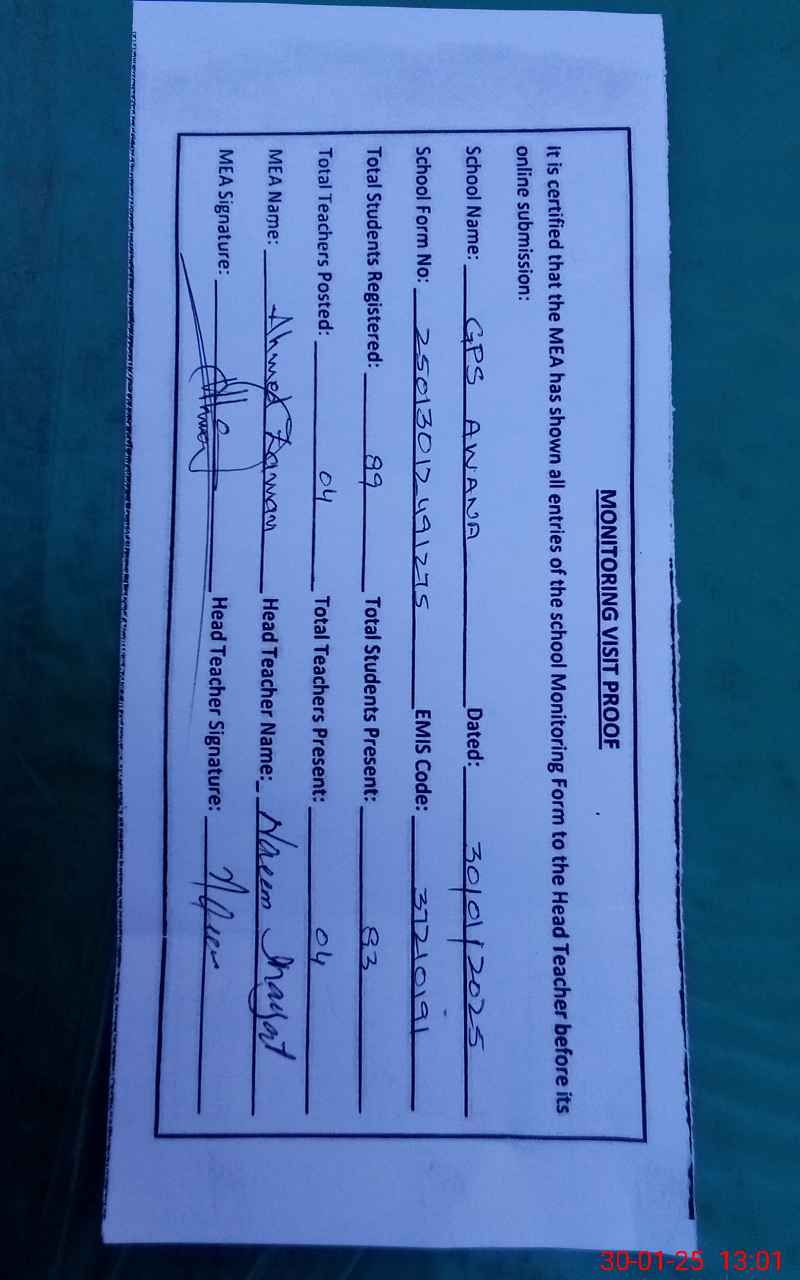 MONITORING VISIT PROOF
It is certified that the MEA has shown all entries of the school Monitoring Form to the Head Teacher before its
online submission:
School Name: GPS AWANA Dated: 30/01/2025
School Form No: 25013012491275 EMIS Code: 37210191
Total Students Registered: 89 Total Students Present: 83
Total Teachers Posted: 04 Total Teachers Present: 04
MEA Name: Ahmed Zaman Head Teacher Name: Naeem Inayat
MEA Signature: Head Teacher Signature:
30-01-25 13:01